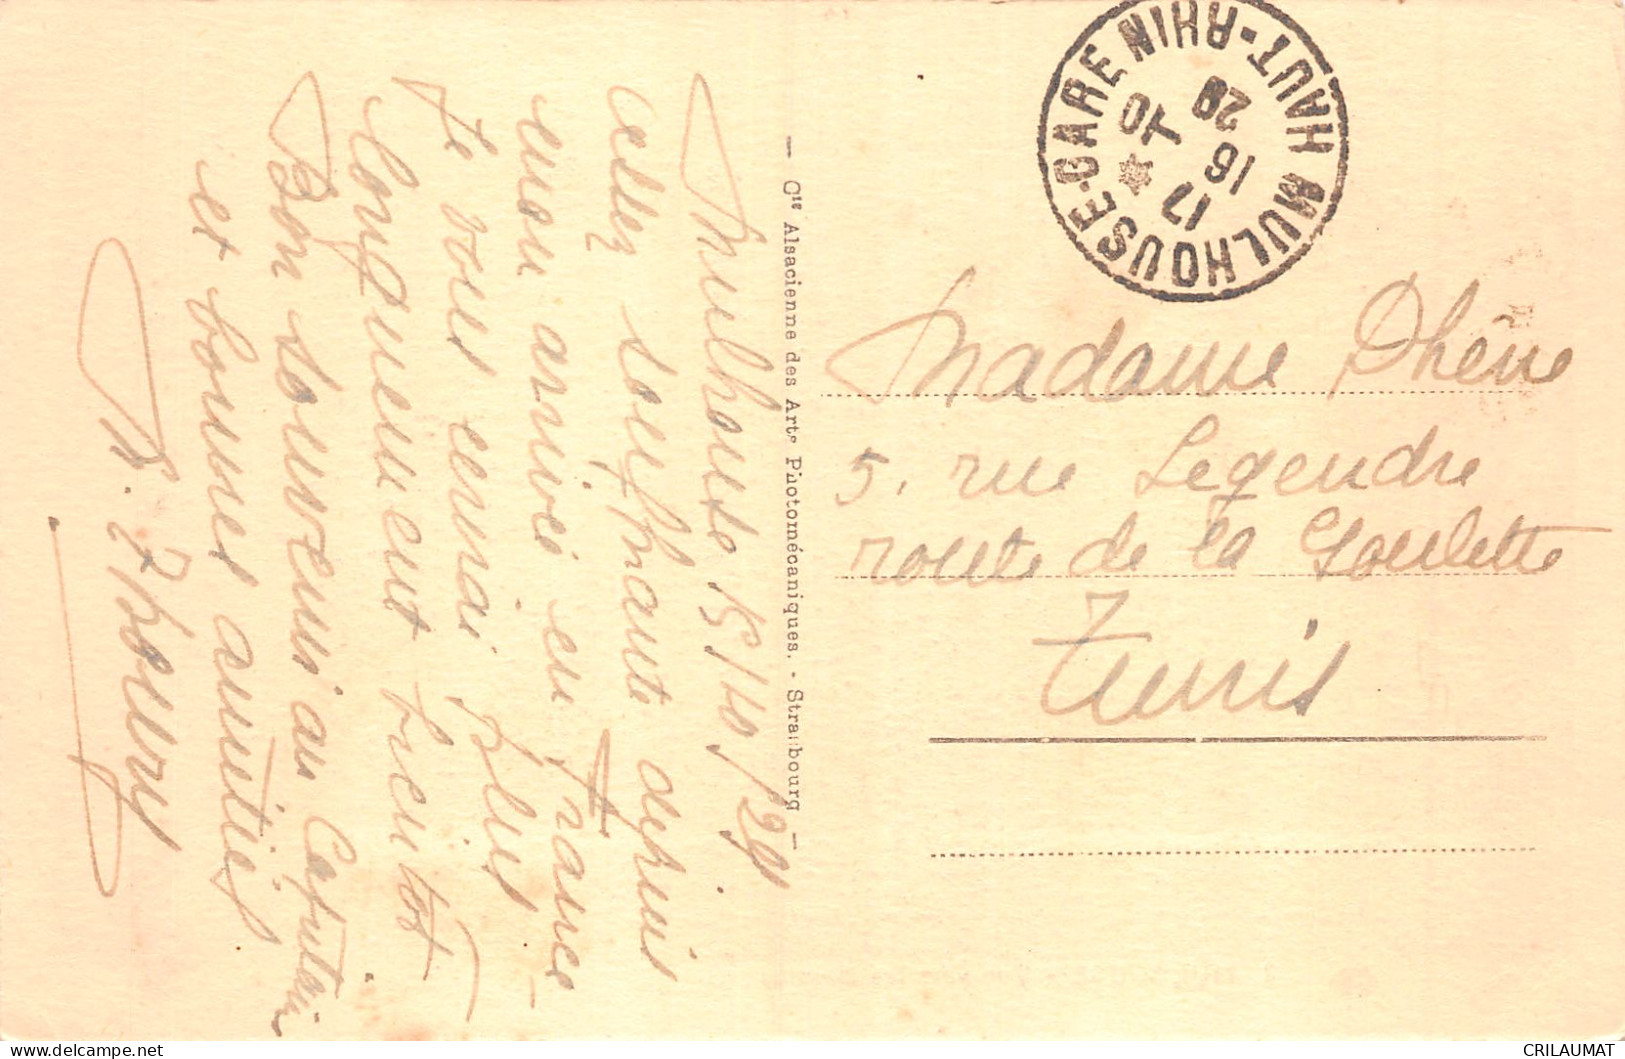 Mulhouse 15/10/29
assez souffrante depuis
mon arrivée en France
Je vous écrirai plus
longuement bientôt
Bon souvenir au Capitaine
et bonnes amitiés
— Cie Alsacienne des Arts Photomécaniques. - Strasbourg —
MULHOUSE-GARE HAUT-RHIN
17
16
10
Madame Phéne
5, rue Legendre
route de la Goulette
Tunis
CRILAUMAT